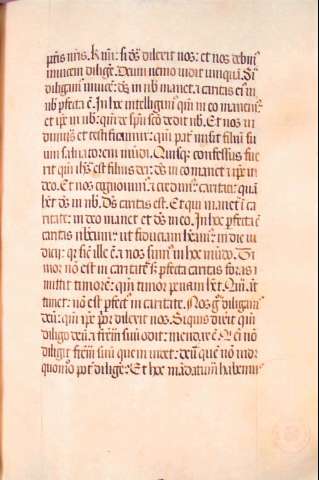 pctis nris. Kmi: si ds dilexit nos: et nos debemus
invicem diligere. Deum nemo vidit unquam. Si
diligamus invicem: ds in nob manet, et caritas eius in
nob perfecta e. In hoc intelligimus quia in eo manemus
et ipe in nob: quia de spu suo dedit nob. Et nos vi
dimus et testificamur: quia pater misit filium su
um salvatorem mundi. Quisq confessus fue
rit quia ihs est filius dei: ds in eo manet et ipe in
deo. Et nos cognovimus et credimus caritati: quam
het ds in nob. Ds caritas est. Et qui manet i ca
ritate: in deo manet et ds in eo. In hoc perfecta e
caritas nbcum: ut fiduciam heamus in die iu
dicii: qr sic ille e et nos sumus in hoc mundo. Ti
mor non est in caritate: s perfecta caritas foras
mittit timorem: qm timor penam het. Qui at
timet: non est perfectus in caritate. Nos g diligamus
deum: qm ipe prior dilexit nos. Si quis dixerit qm
diligo deum et frem suum odit: mendax e. Qi ei non
diligit frem suum quem videt: deum que no vidz
quomo pot diligere. Et hoc mandatum habemus